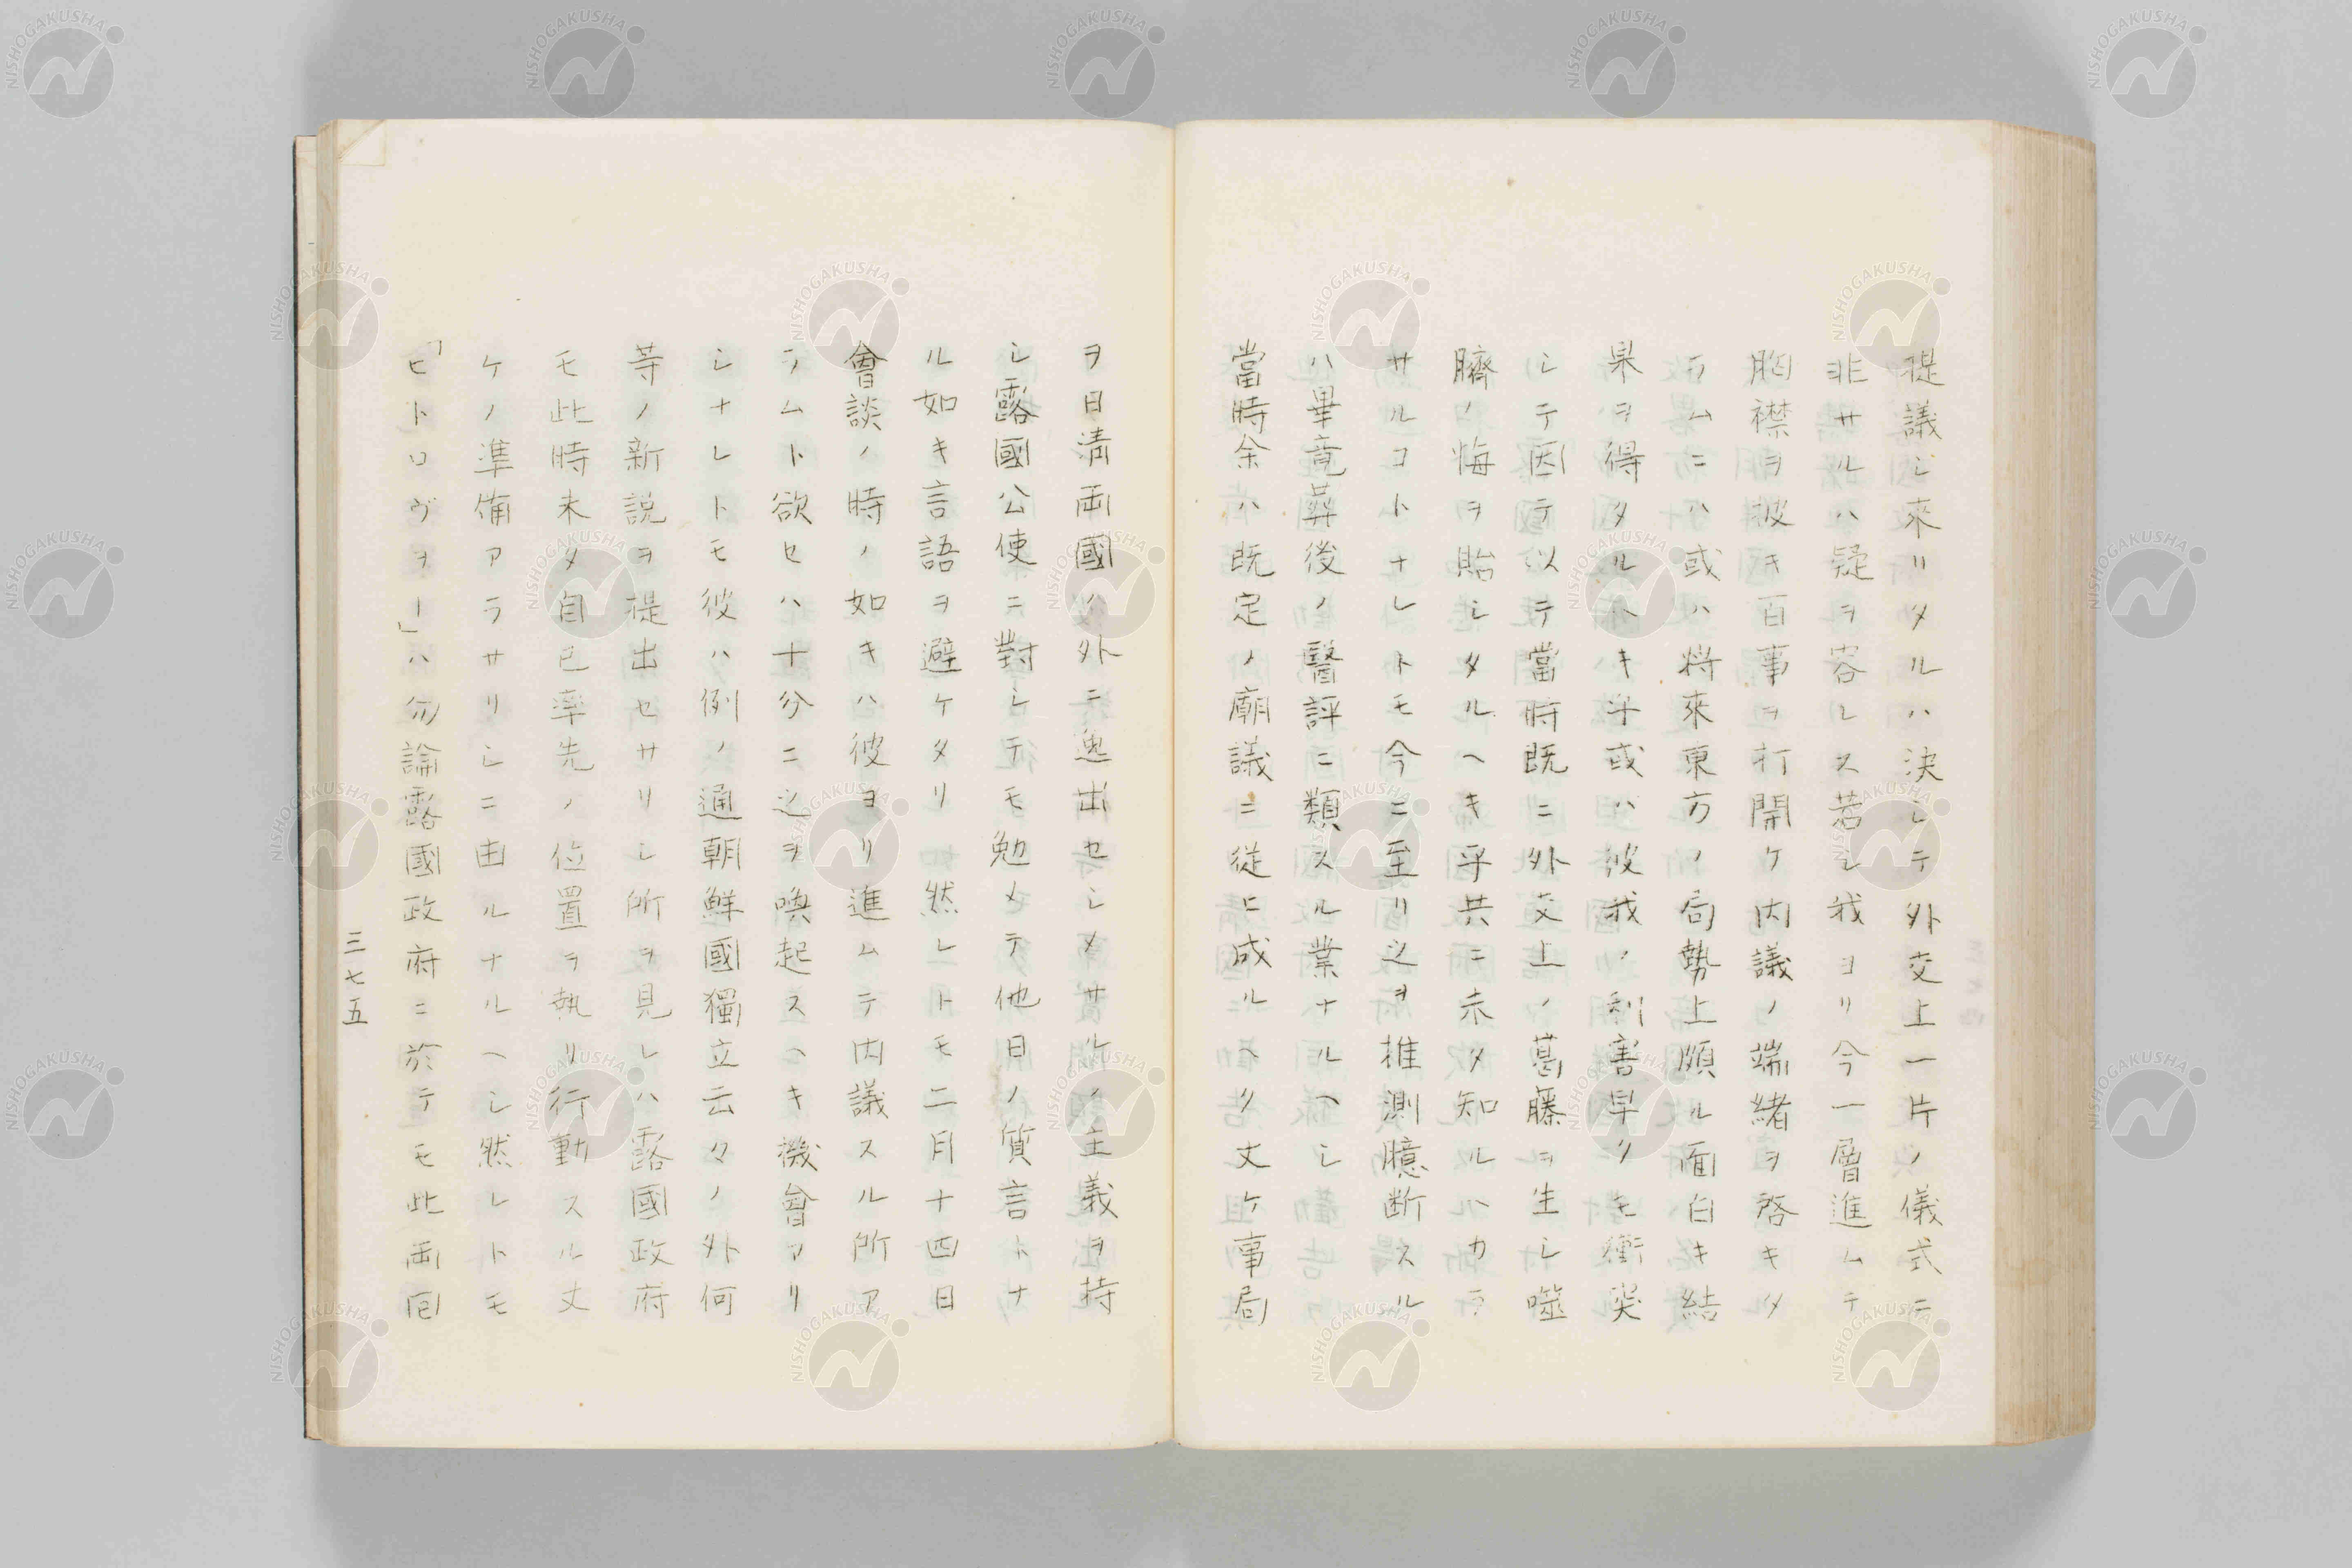 提議シ來リタルハ決シテ外交上一片ノ儀式ニ
非サルハ疑ヲ容レス若シ我ヨリ今一層進ムテ
胸襟ヲ披キ百事ヲ打開ケ内議ノ端緒ヲ啓キタ
ラムニハ或ハ將來東方ノ局勢上頗ル面白キ結
果ヲ得タルヘキ乎或ハ彼我ノ利害早クモ衝突
シテ因テ以テ當時既ニ外交上ノ葛藤ヲ生シ噬
臍ノ悔ヲ貽シタルヘキ乎共ニ未タ知ルハカラ
サルコトナレトモ今ニ至リ之ヲ推測臆断スル
ハ畢竟葬後ノ醫評ニ類スル業ナルヘシ
當時余ハ既定ノ廟議ニ從ヒ成ルヘク丈ケ事局
ヲ日清両國ノ外ニ逸出セシメサルノ主義ヲ持
シ露國公使ニ對シテモ勉メテ他日ノ質言トナ
ル如キ言語ヲ避ケタリ然レトモ二月十四日
會談ノ時ノ如キハ彼ヨリ進ムテ内議スル所ア
ラムト欲セハ十分ニ之ヲ喚起スヘキ機會アリ
シナレトモ彼ハ例ノ通朝鮮國獨立云々ノ外何
等ノ新説ヲ提出セサリシ所ヲ見レハ露國政府
モ此時未タ自己率先ノ位置ヲ執リ行動スル丈
ケノ準備アラサリシニ由ルナルヘシ然レトモ
「ヒトロヴヲー」ハ勿論露國政府ニ於テモ此両囘
三七五
NISHOGAKUSHA